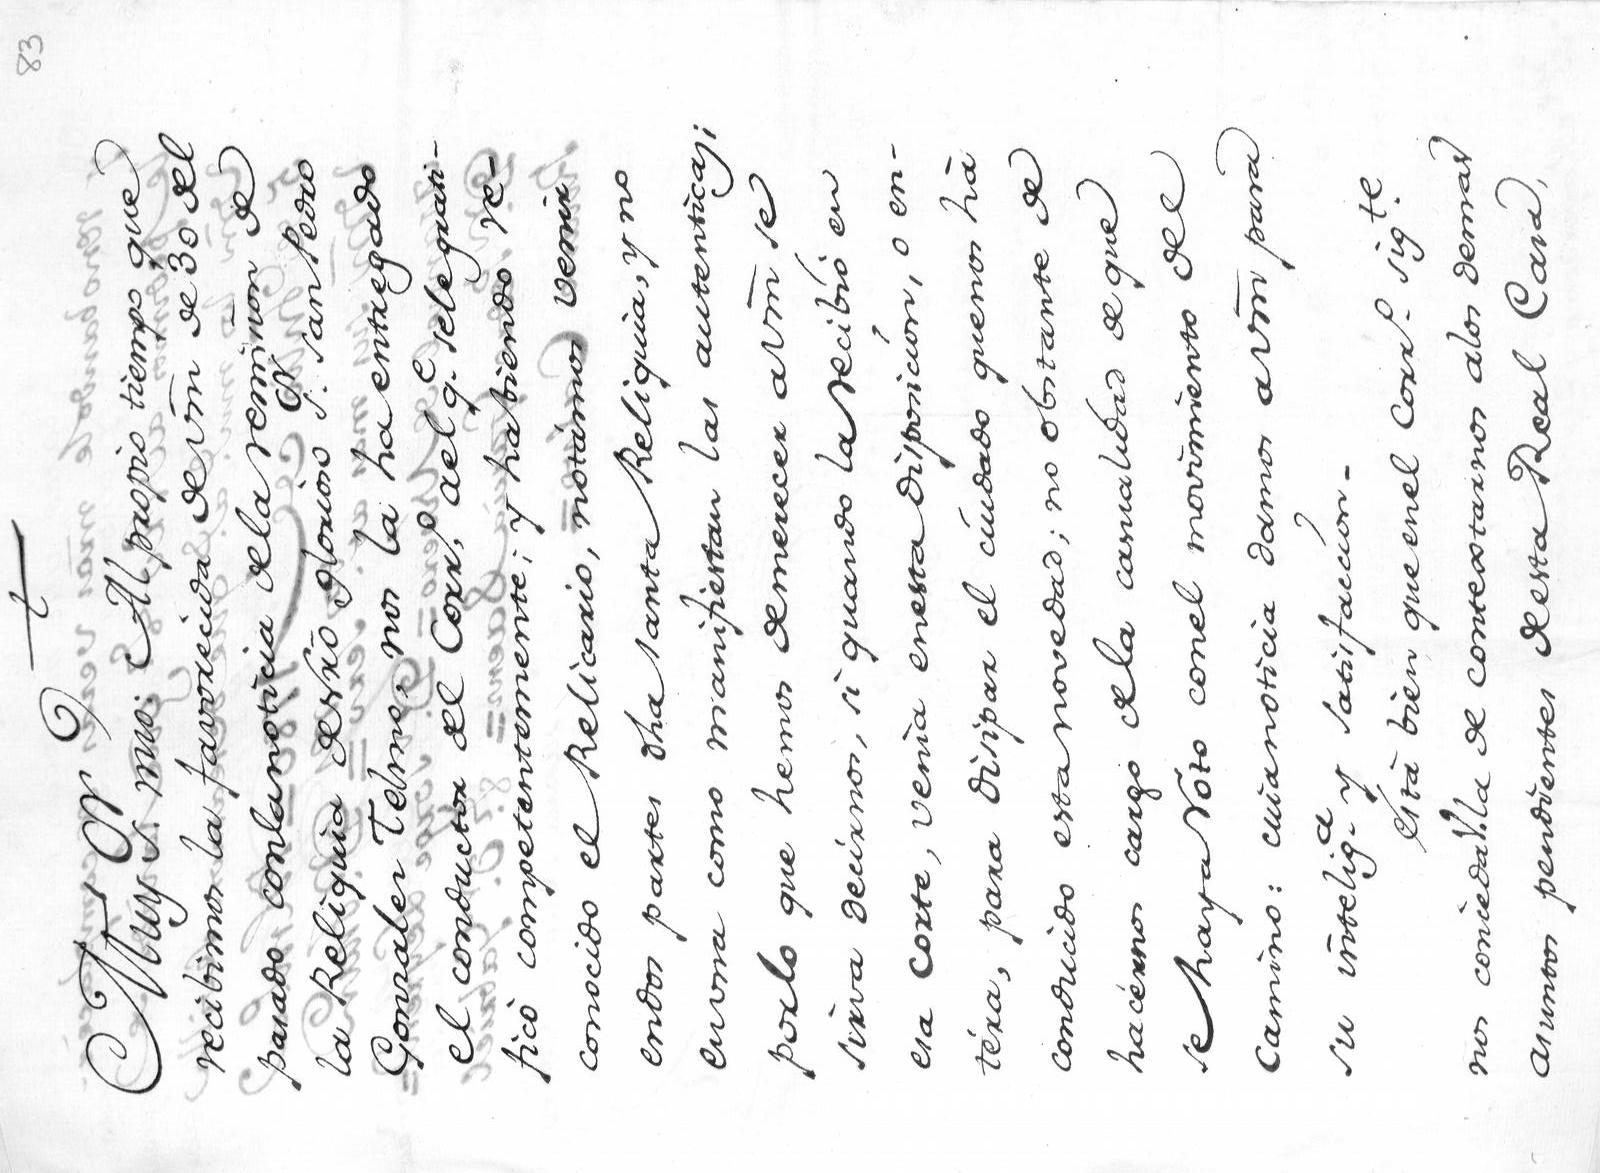 83
†
Muy S.r mio: Al propio tiempo, que
recibimos la favorecida de vm̃ de 30 del
pasado con la noticia de la remision de
la Reliquia de ñro glorioso S.r San Pedro
Gonzalez Telmo, nos la ha entregado
el conductor del Corr.o, al q.e se le grati-
ficó competentemente; y habiendo re-
conocido el Relicario, notámos venir
en dos partes dha santa Reliquia, y no
en una como manifiestan las autenticas;
por lo que hemos de merecer a vm̃ se
sirva decirnos, si quando la recibió en
esa corte, venia en esta disposicion, o en-
téra, para disipar el cuidado que nos hà
conducido esta novedad; no obstante de
hacérnos cargo de la casualidad de que
se haya róto con el movimiento del
Camino: cuia noticia damos a vm̃ para
su intelig.a y satisfaccion.
Está bien que en el Corr.o sig.te
nos conceda Vm̃ la de contestarnos a los demas
asuntos pendientes de esta Real Casa,